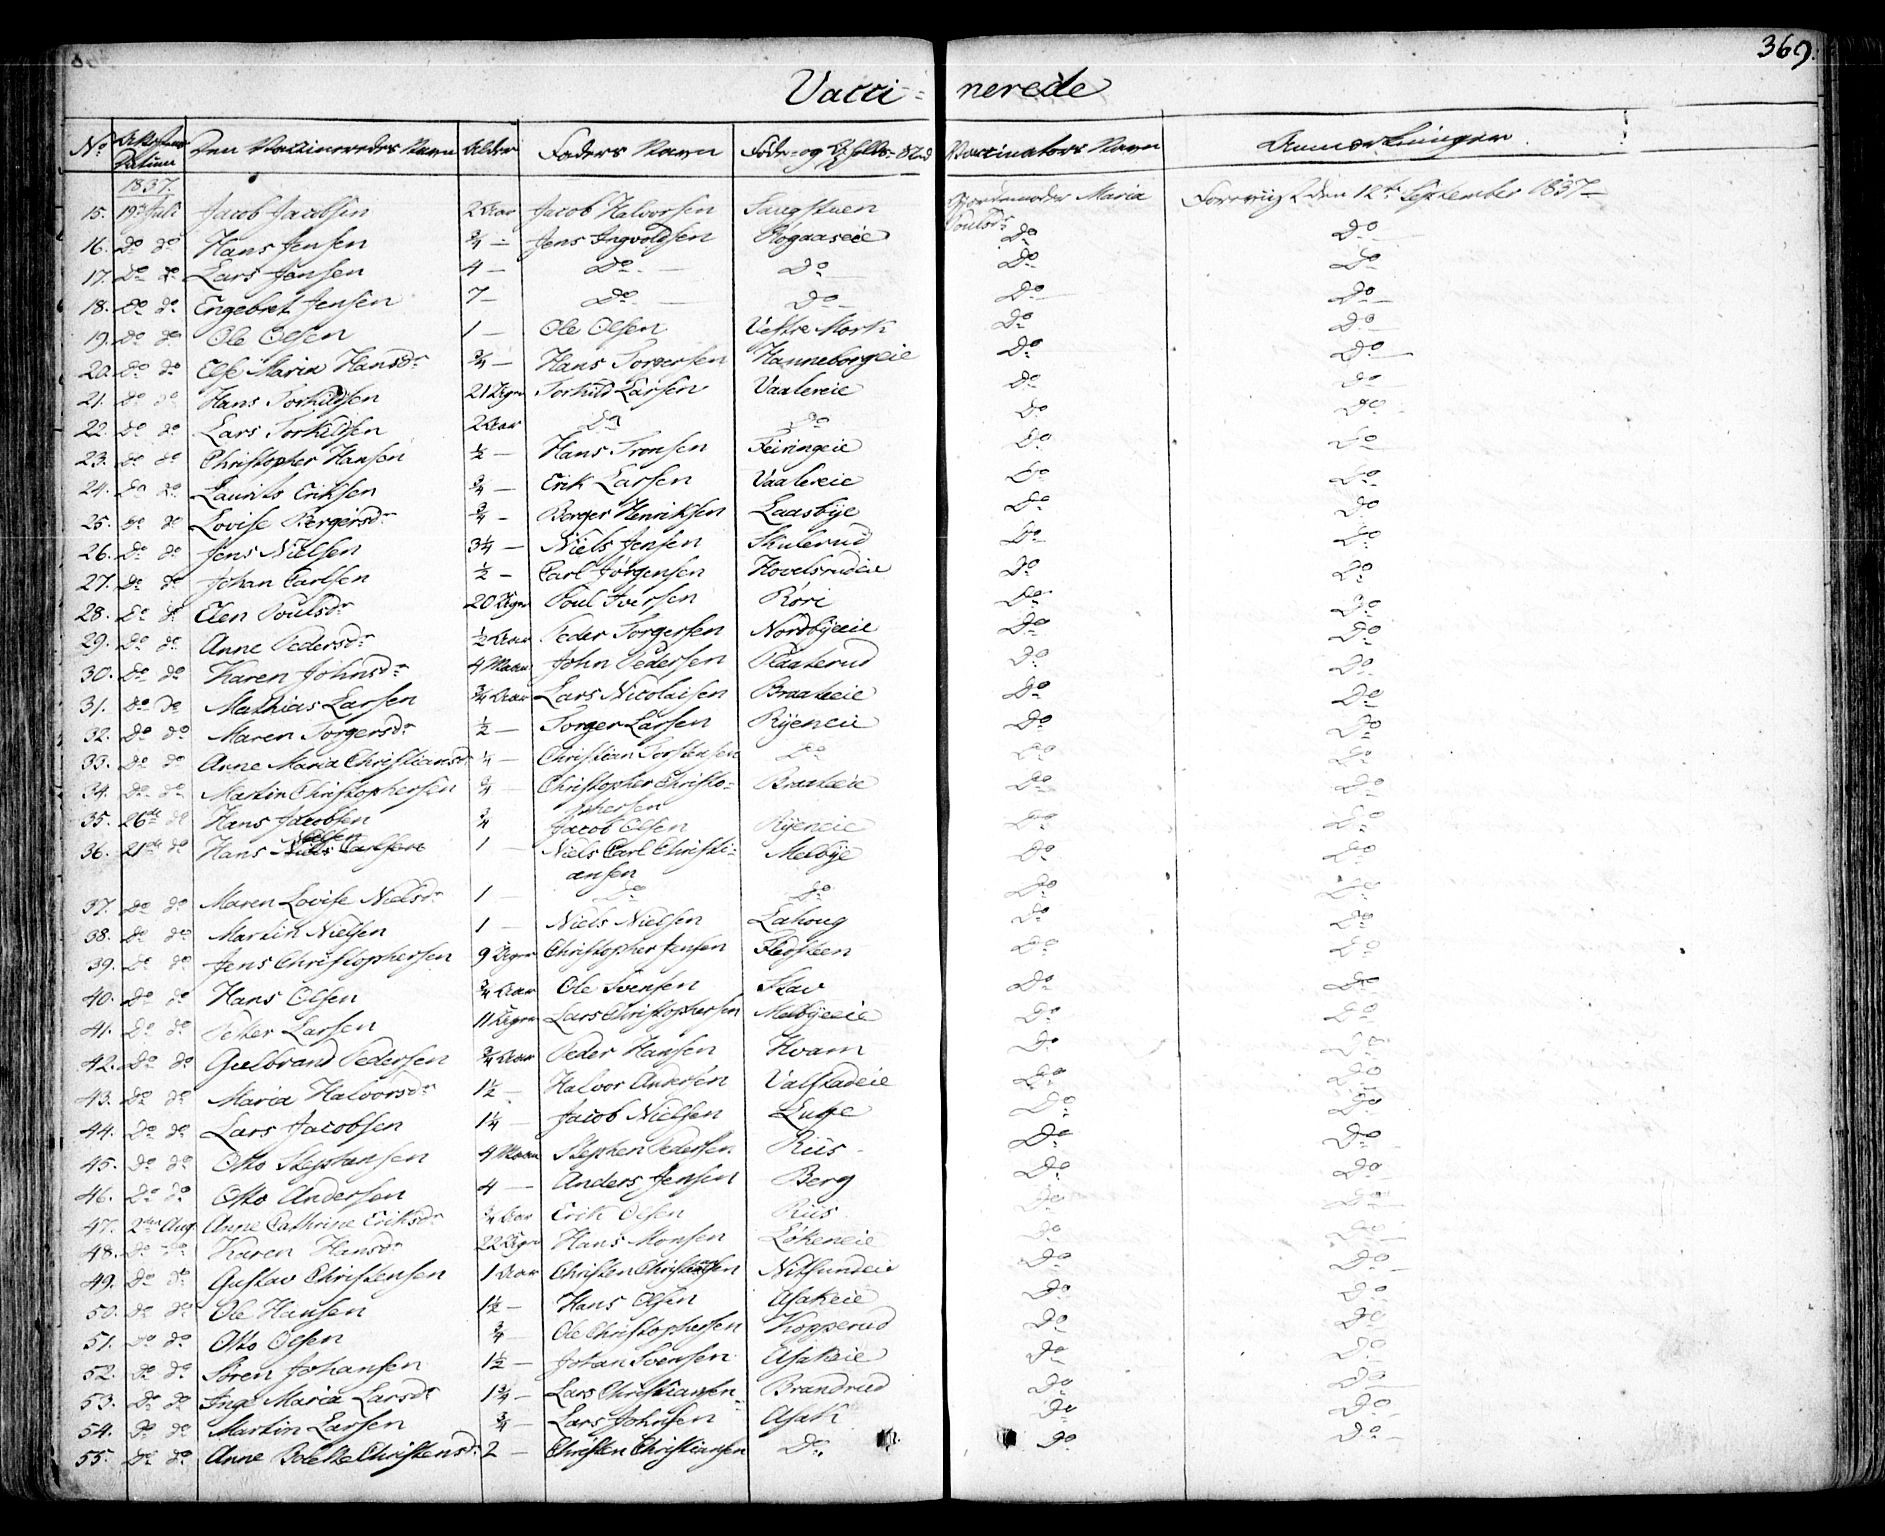 369.
Vacci- nerede
No Attestens Datum Den Vaccineredes Navn Alder Faders Navn Føde- og Opholds-Sted Vaccinators Navn Anmærkninger
1837.
15. 19de Juli Jacob Jacobsen 2 Aar Jacob Halvorsen Saugstuen Jordemoder Maria Poulsdr Forevist den 12te September 1837
16. Do do Hans Jensen 3/4 - Jens Ingvoldsen Rogaaseie Do Do
17. Do do Lars Jensen 4 - Do Do Do Do
18. Do do Engebret Jensen 7 - Do Do Do Do
19. Do do Ole Olsen 1 - Ole Olsen Vestre Mork Do Do
20. Do do Else Maria Hansdr 3/4 - Hans Torgersen Hanneborgeie Do Do
21. Do do Hans Torkildsen 21 Uger Torkild Larsen Vaalereie Do Do
22. Do do Lars Torkildsen 2 Aar Do Do Do Do
23. Do do Christopher Hansen 1/2 - Hans Tronsen Feiringeie Do Do
24. Do do Laurits Eriksen 3/4 - Erik Larsen Vaalereie Do Do
25. Do do Lovise Bergersdr 3/4 - Berger Henriksen Laasbye Do Do
26. Do do Jens Nielsen 3 1/4 - Niels Jensen Skulerud Do Do
27. Do do Johan Carlsen 1/2 - Carl Jørgensen Hovelsrudeie Do Do
28. Do do Elen Poulsdr 20 Uger Poul Iversen Røri Do Do
29. Do do Anne Pedersdr 1/2 Aar Peder Torgersen Nordbyeie Do Do
30. Do do Karen Johnsdr 4 Maan John Pedersen Raakerud Do Do
31. Do do Mathias Larsen 3/4 Aar Lars Nicolaisen Braateeie Do Do
32. Do do Maren Torgersdr 1/2 - Torger Larsen Ryeneie Do Do
33. Do do Anne Maria Christiansdr 1/4 - Christian Torstensen Do Do Do
34. Do do Martin Christophersen 3/4 - Christopher Christo-
phersen Braateeie Do Do
35. 26de do Hans Jacobsen 3/4 Jacob Olsen Ryeneie Do Do
36. 21de do Hans Nielsen 1 - Niels Carl Christi-
ansen Melbye Do Do
37. Do do Maren Lovise Nielsdr 1 - Do Do Do Do
38. Do do Martin Nielsen 1 - Niels Nielsen Lahoug Do Do
39. Do do Jens Christophersen 9 Uger Christopher Jensen Do Do
40. Do do Hans Olsen 3/4 Aar Ole Svensen Skav Do Do
41. Do do Petter Larsen 11 Uger Lars Christophersen Melbyeeie Do Do
42. Do do Gulbrand Pedersen 3/4 Aar Peder Hansen Hvam Do Do
43. Do do Maria Halvorsdr 1 1/2 - Halvor Andersen Valstadeie Do Do
44. Do do Lars Jacobsen 1 1/4 - Jacob Nielsen Do Do
45. Do do Otto Stephansen 4 Maan Stephen Pedersen Riis Do Do
46. Do do Otto Andersen 4 - Anders Jensen Berg Do Do
47. 2den Aug. Anne Cathrine Eriksdr 3/4 Aar Erik Olsen Riis Do Do
48. Do do Karen Hansdr 22 Uger Hans Monsen Løkeneie Do Do
49. Do do Gustav Christensen 1 Aar Christen Christiansen Nitsundeie Do Do
50. Do do Ole Hansen 1 1/2 - Hans Olsen Asakeie Do Do
51. Do do Otto Olsen 3/4 - Ole Christophersen Kopperud Do Do
52. Do do Søren Johansen 1 1/2 - Johan Svensen Asakeie Do Do
53. Do do Inge Maria Larsdr 1 3/4 - Lars Christiansen Brandrud Do Do
54. Do do Martin Larsen 3/4 - Lars Johnsen Asak Do Do
55. Do do Anne Bolette Christensdr 2 - Christen Christiansen Do Do Do